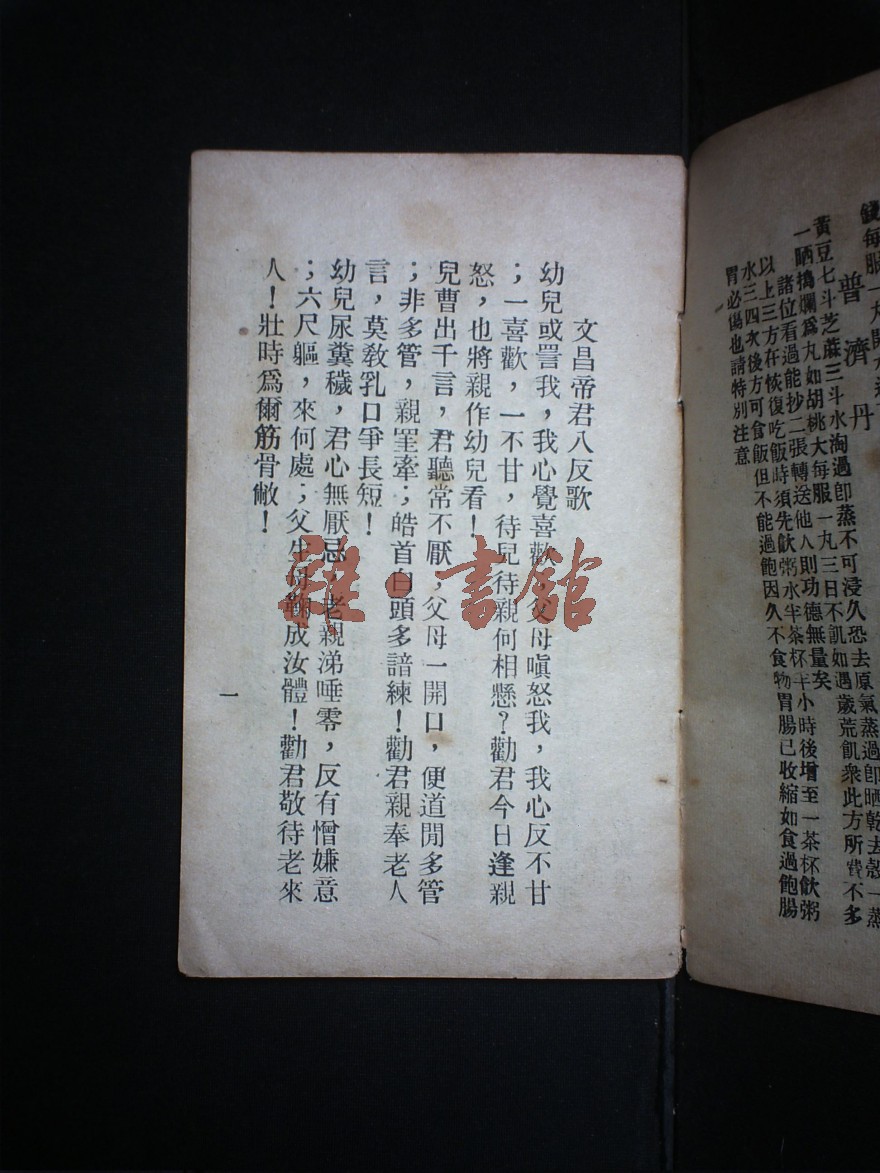 普濟丹
黃豆七斗芝蔴三斗水淘過卽蒸不可浸久恐去原氣蒸過卽晒乾去殼一蒸
一晒搗爛爲丸如胡桃大每服一丸三日不飢如遇歲荒飢衆此方所費不多
諸位看過能抄二張轉送他人則功德無量矣
以上三方在恢復吃飯時須先飲粥水半茶杯半小時後增至一茶杯飲粥
水三四次後方可食飯但不能過飽因久不食物胃腸已收縮如食過飽腸
胃必傷也請特別注意
文昌帝君八反歌
幼兒或詈我，我心覺喜歡，父母嗔怒我，我心反不甘
；一喜歡，一不甘，待兒待親何相懸？勸君今日逢親
怒，也將親作幼兒看！
兒曹出千言，君聽常不厭，父母一開口，便道閒多管
；非多管，親罣牽；皓首白頭多諳練！勸君親奉老人
言，莫敎乳口爭長短！
幼兒尿糞穢，君心無厭忌，老親涕唾零，反有憎嫌意
；六尺軀，來何處；父生母鞠成汝體！勸君敬待老來
人！壯時爲爾筋骨敝！
一
雜·書館